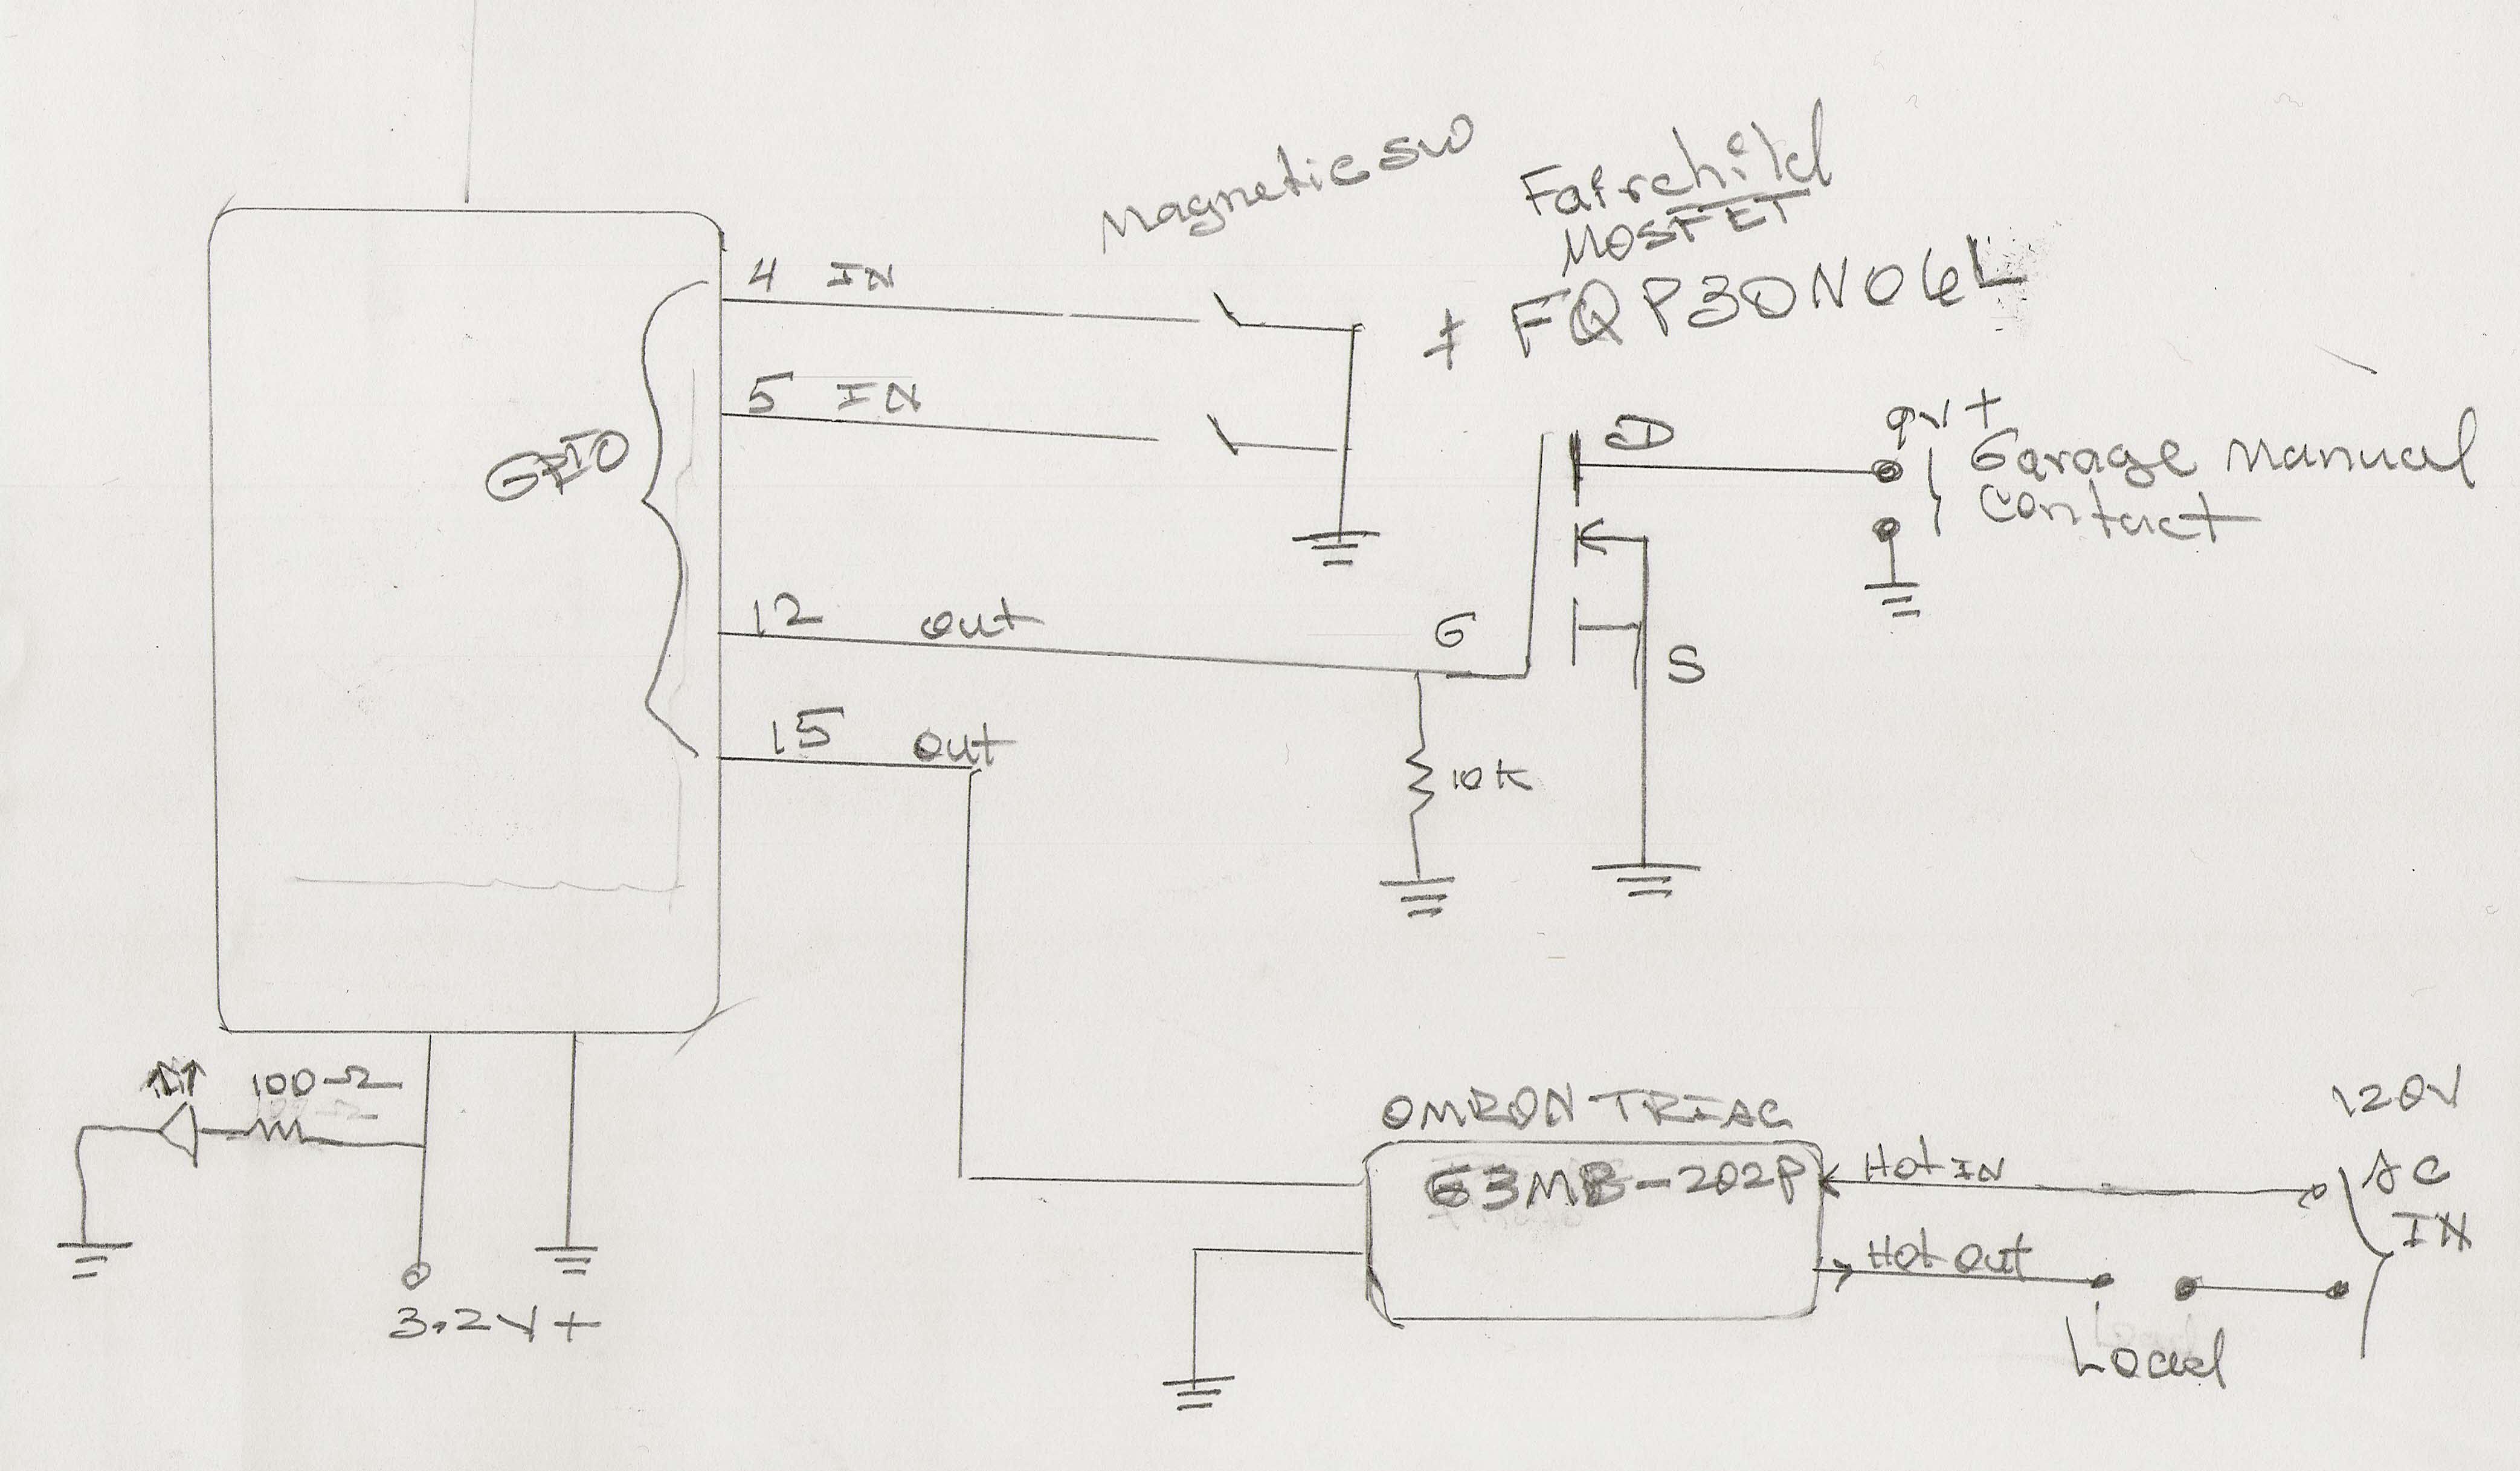 Magnetic SW
Fairchild
MOSFET
+ FQP30N06L
4 IN
5 IN
GPIO
12 out
15 out
G
D
S
9V+
Garage Manual
Contact
10K
100Ω
3.2V+
OMRON TRIAC
G3MB-202P
Hot IN
Hot Out
Load
120V
AC
IN